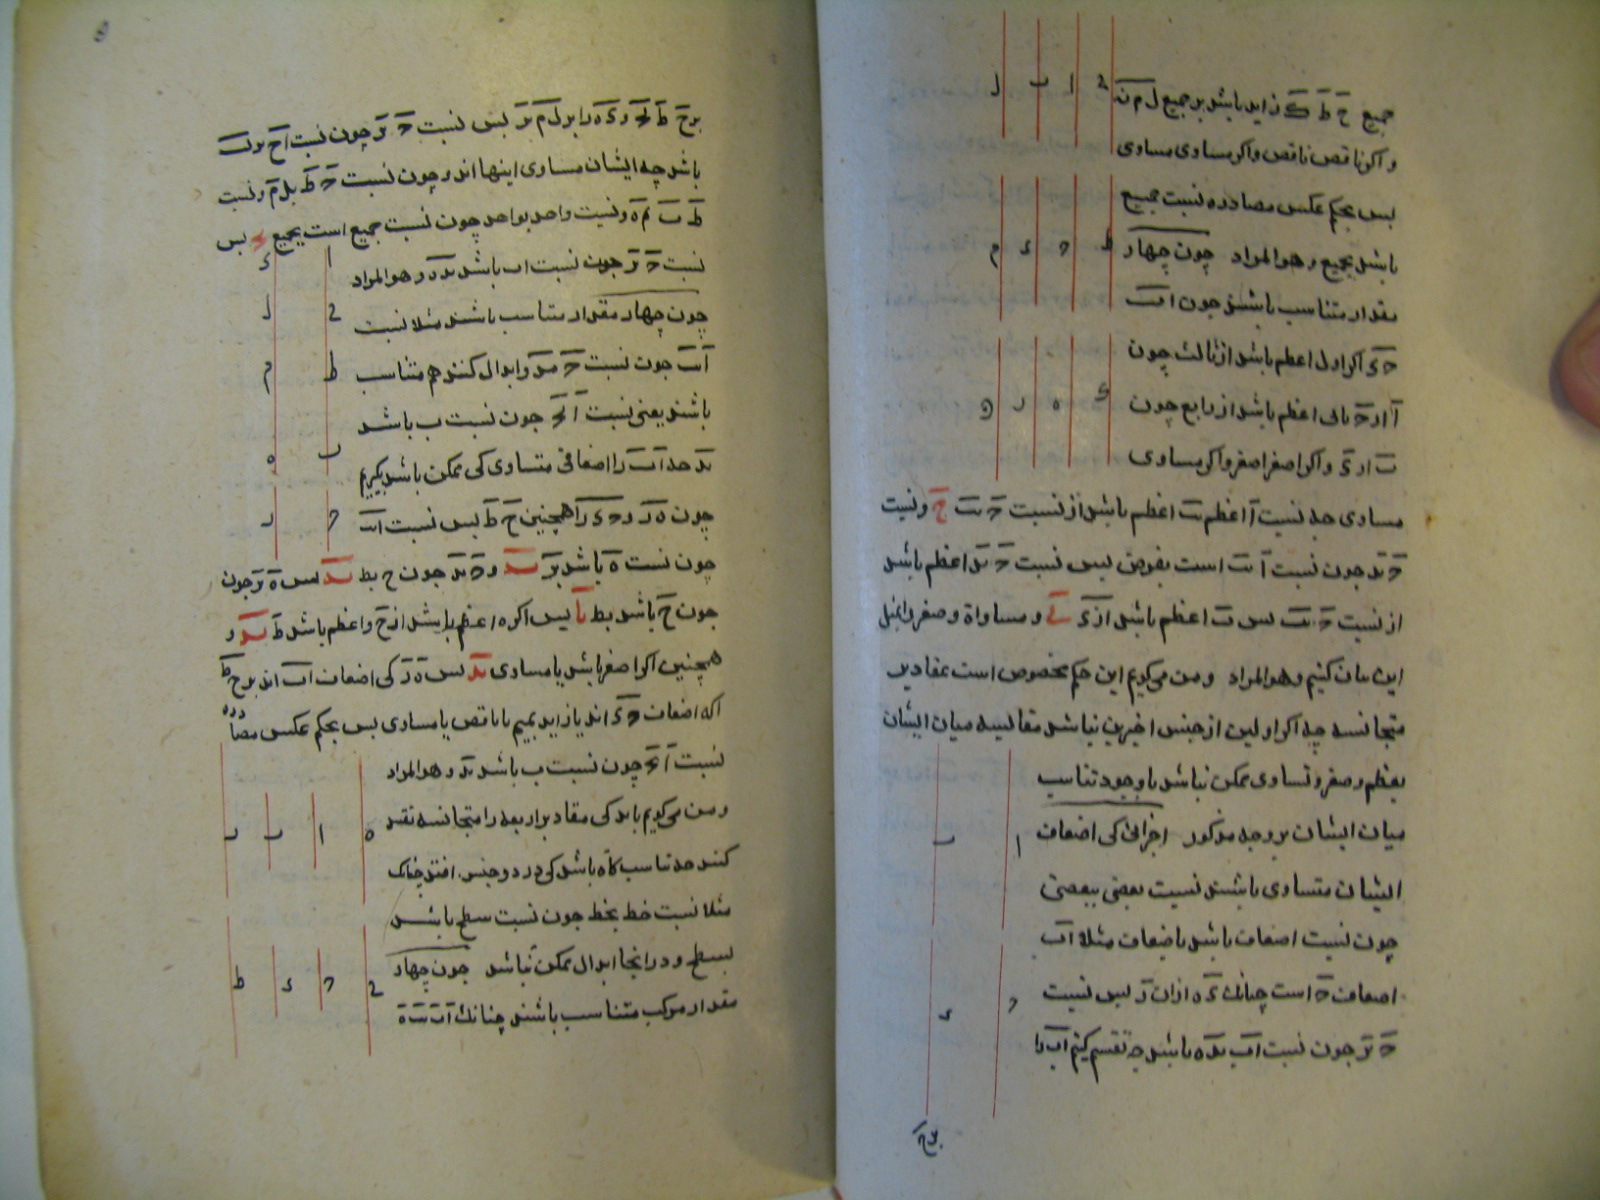 جمیع ح ط ک زاید باشد بر جمیع ل م ن
و اکر ناقص ناقص و اکر مساوی مساوی
بس بحکم عکس مصادره نسبت جمیع
باشد بجمیع و هو المراد چون چهار
مقدار متناسب باشند چون ا ب
ح د اکر اول اعظم باشد از ثالث چون
ا از ح ثانی اعظم باشد از رابع چون
ب از د و اکر اصغر اصغر و اکر مساوی
مساوی چه نسبت ا اعظم ب اعظم باشد از نسبت ح ب ح و نسبت
ح بد چون نسبت ا ب است بفرض بس نسبت ح بد اعظم باشد
از نسبت ح ب بس ب اعظم باشد از د و مساواة و صغر را بمثل
این بیان کنیم و هو المراد و من می کویم این حکم مخصوص است بمقادیر
متجانسه چه اکر اولین از جنس اخیرین نباشد مقایسه میان ایشان
بعظم و صغر و تساوی ممکن نباشد با وجود تناسب
میان ایشان بر وجه مذکور اجزائی کی اضعاف
ایشان متساوی باشند نسبت بعضی ببعضی
چون نسبت اضعاف باشد باضعاف مثلا ا ب
اضعاف ح است چنانک د ه ازان ز بس نسبت
ح بز چون نسبت ا ب بد ه باشد چه تقسیم کنیم ا ب را
بر ح
ح ا ب ل
ط ح د م
ک ه ر و
ا ب
ح د
بر ح ط و د ه را بر ل م بس نسبت ح بز چون نسبت ا ح
باشد چه ایشان مساوی اینها اند و چون نسبت ح ط بل م و نسبت
ط ب م ه و نسبت واحد بواحد چون نسبت جمیع است بجمیع بس
نسبت ح بز چون نسبت ا ب باشد بد ه و هو المراد
چون چهار مقدار متناسب باشند مثلا نسبت
ا ب چون نسبت ح بد و ابدال کنند هم متناسب
باشند یعنی نسبت ا بح چون نسبت ب باشد
بد چه ا ب را اضعافی متساوی کی ممکن باشد بکیریم
چون ه ز و ح د را همچنین ح ط بس نسبت ا ب
چون نسبت ه باشد بز و ح بد چون ح بط بس ه بز چون
چون ح باشد بط بس اکر ه اعظم باشد از ح و اعظم باشد ط و
همچنین اکر اصغر باشد یا مساوی بس ه ز کی اضعاف ا ب اند بر ح ط
که اضعاف ح د اند یا زاید بمیم یا ناقص یا مساوی بس بحکم عکس مصادره
نسبت ا بح چون نسبت ب باشد بد و هو المراد
و من می کویم باید کی مقادیر اربعه را متجانسه تقید
کنند چه تناسب کاه باشد کی در دو جنس افتد چنانک
مثلا نسبت خط بخط چون نسبت سطح باشد
بسطح و در انجا ابدال ممکن نباشد چون چهار
مقدار مرکب متناسب باشند چنانک ا ب ب ه
ا د
ح ل
ط م
ب ه
ح ر
ه ا ب ر
ح ح د ط